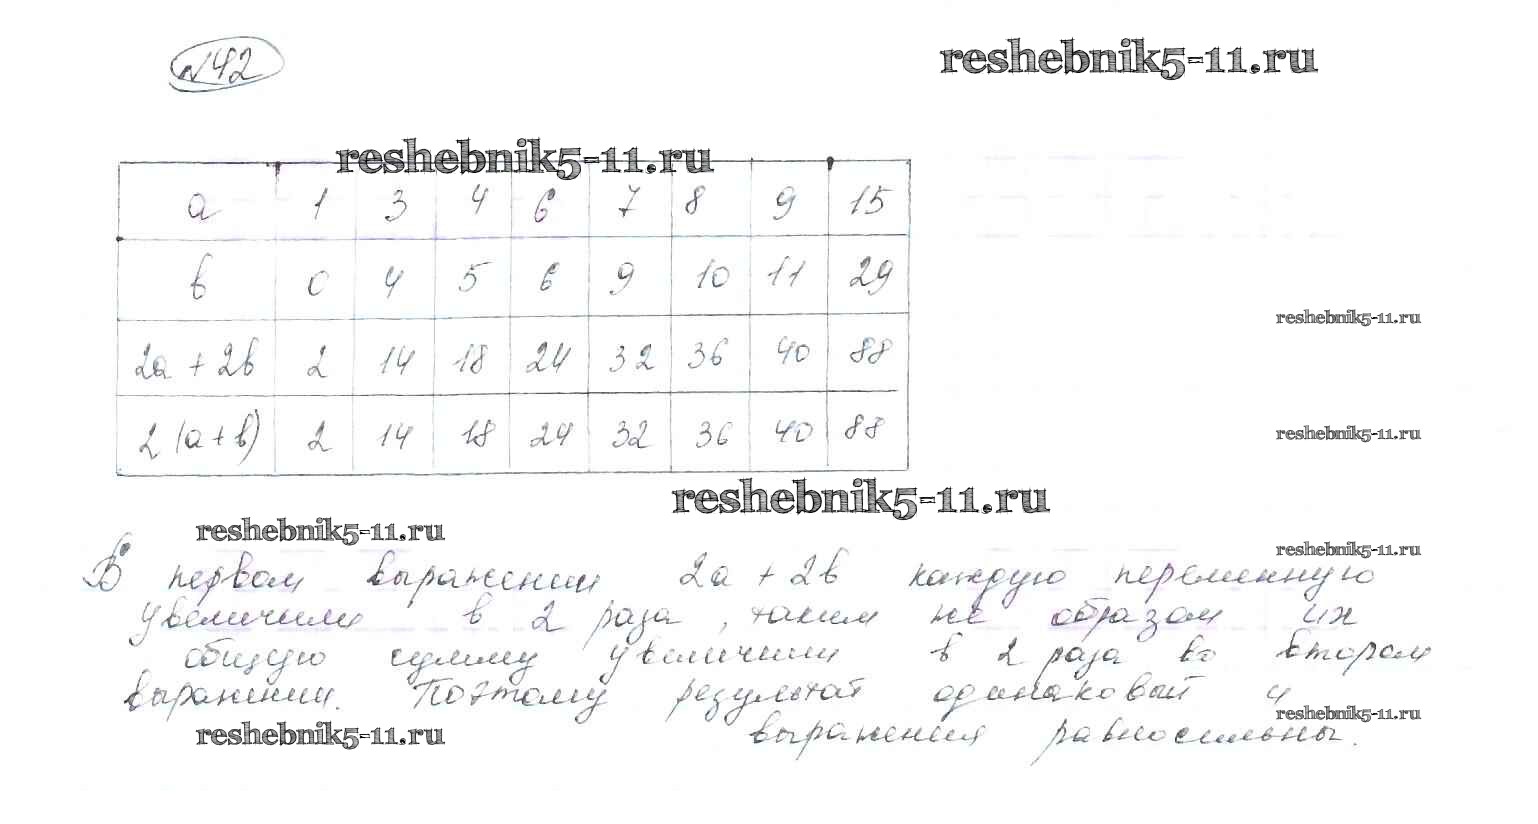 №42
reshebnik5-11.ru
reshebnik5-11.ru
a 1 3 4 6 7 8 9 15
b 0 4 5 6 9 10 11 29
reshebnik5-11.ru
2a + 2b 2 14 18 24 32 36 40 88
2 (a + b) 2 14 18 24 32 36 40 88
reshebnik5-11.ru
reshebnik5-11.ru
reshebnik5-11.ru
reshebnik5-11.ru
В первом выражении 2a + 2b каждую переменную
увеличили в 2 раза, таким же образом их
общую сумму увеличили в 2 раза во втором
выражении. Поэтому результат одинаковый и
reshebnik5-11.ru
reshebnik5-11.ru
выражения равносильны.